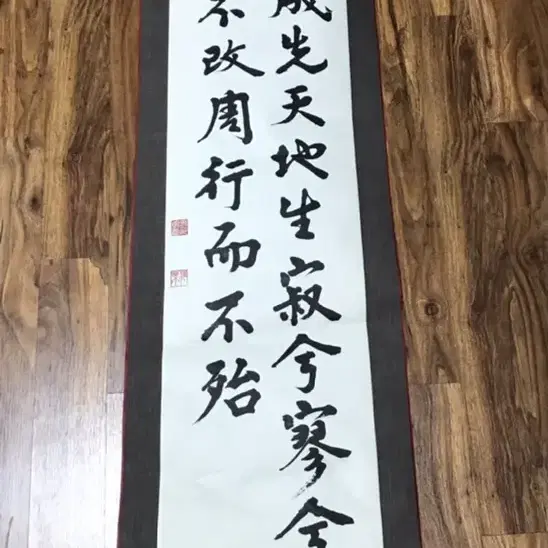 成先天地生寂兮寥兮
不改周行而不殆